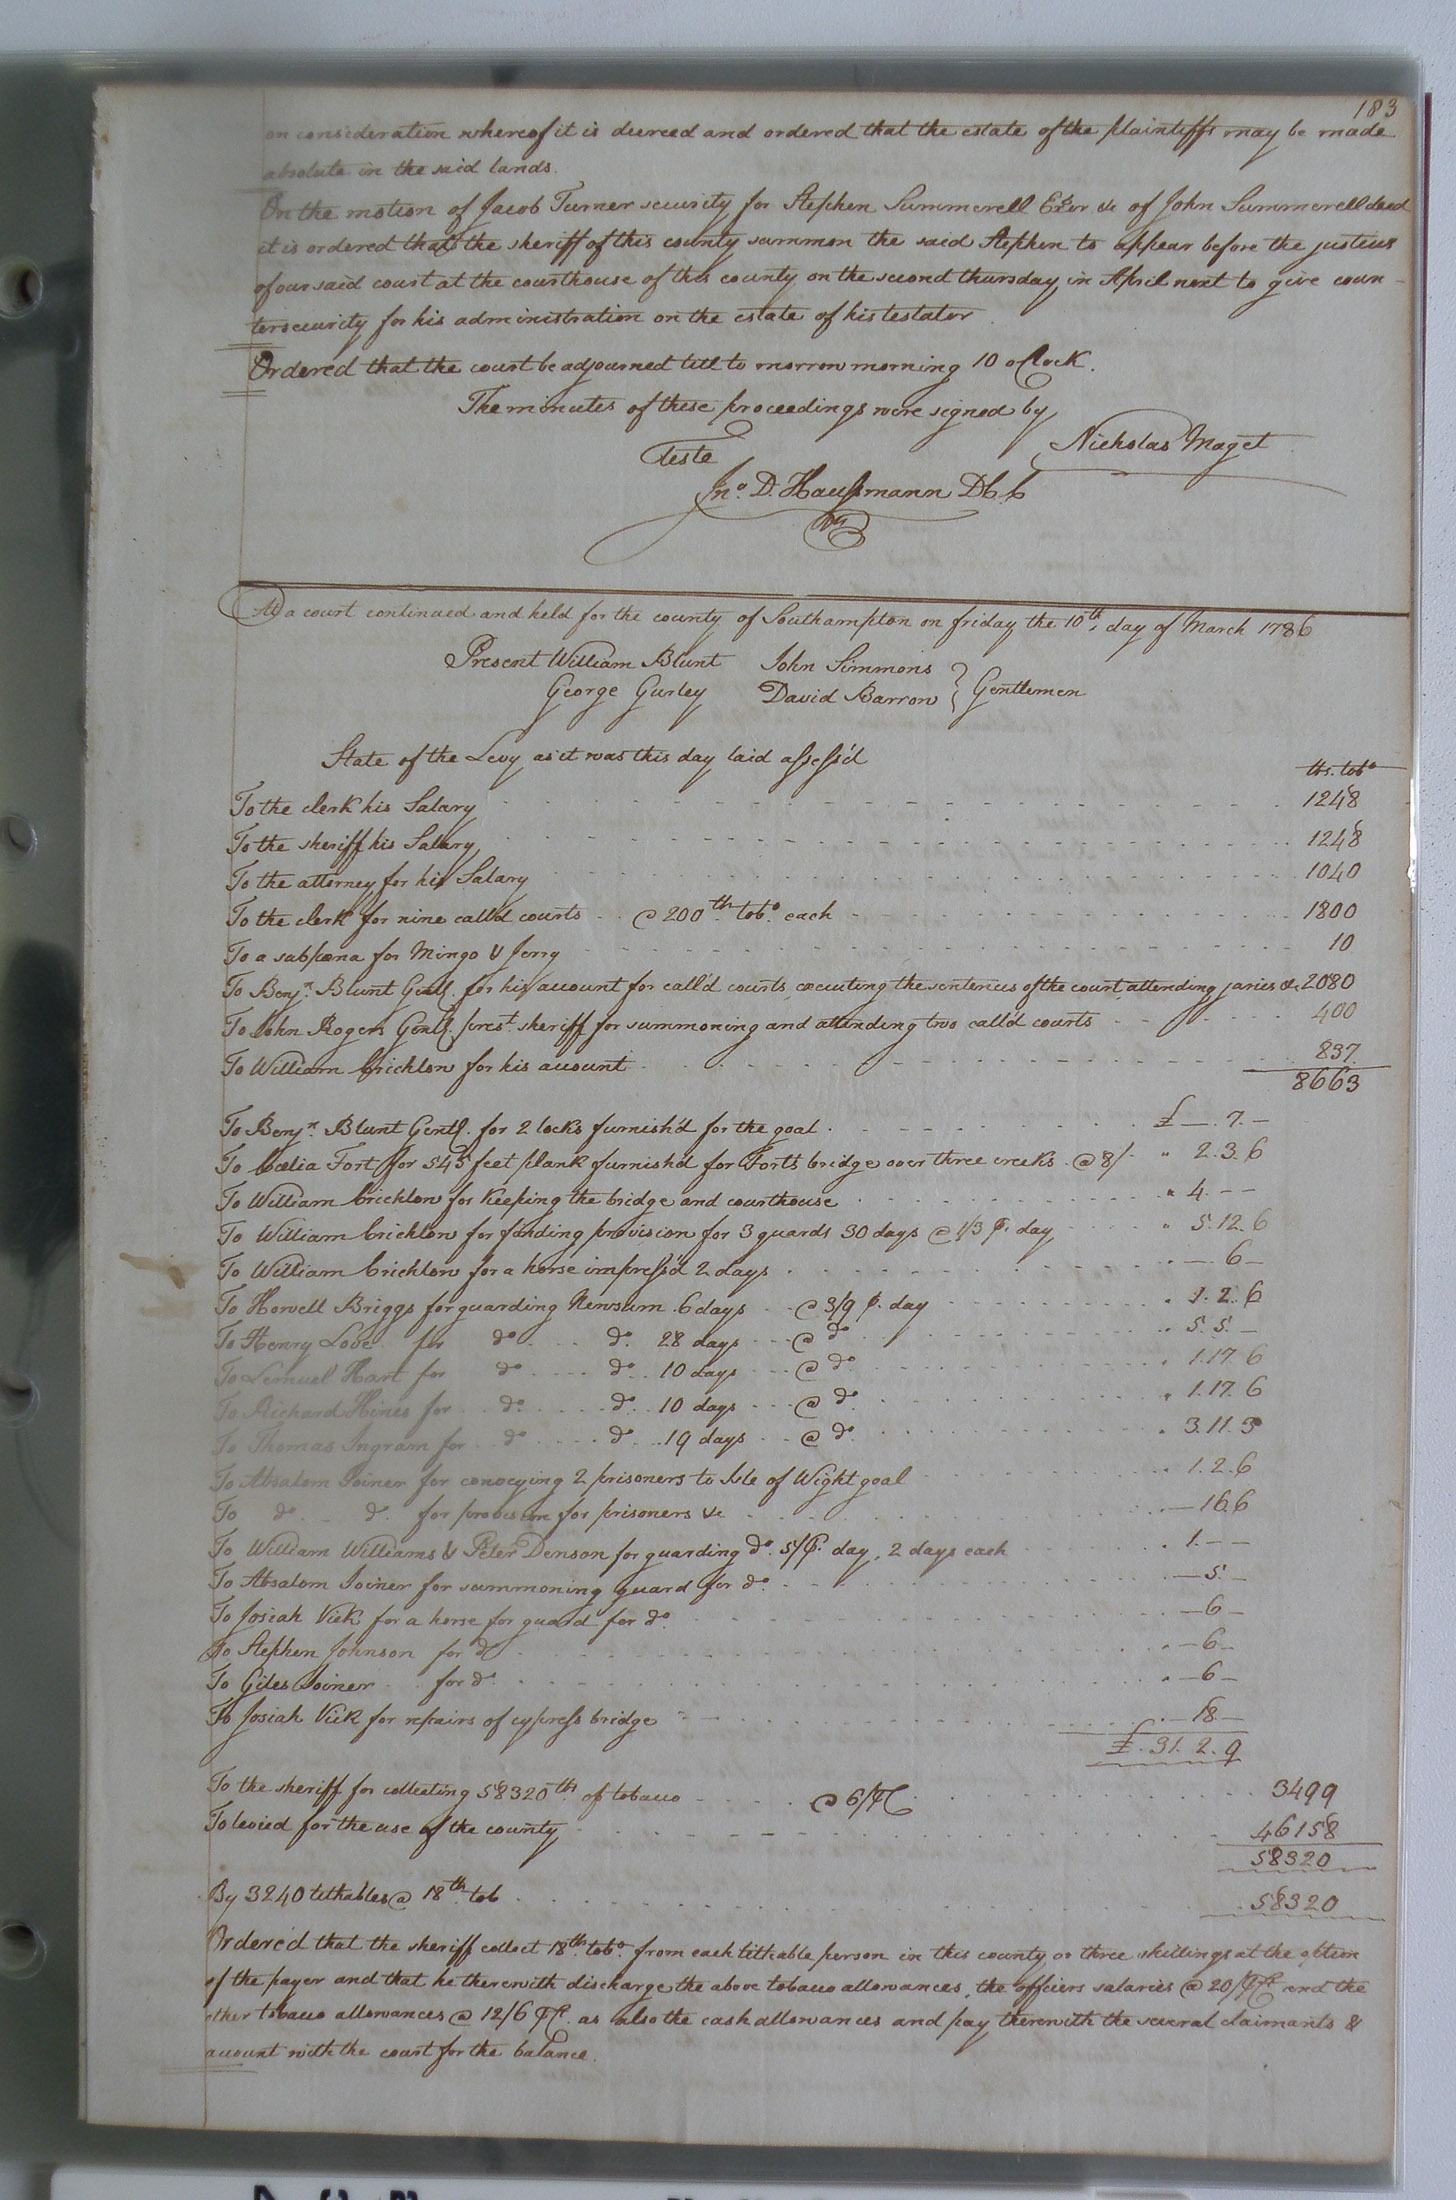 183
on consideration whereof it is decreed and ordered that the estate of the plaintiffs may be made
absolute in the said lands.
On the motion of Jacob Turner security for Stephen Summerell Exor &c of John Summerell decd
it is ordered that the sheriff of this county summon the said Stephen to appear before the justices
of our said court at the courthouse of this county on the second thursday in April next to give coun-
tersecurity for his administration on the estate of his testator
Ordered that the court be adjourned till to morrow morning 10 oClock.
The minutes of these proceedings were signed by
Nicholas Maget
Teste
Jno. D. Haussmann D C C
At a court continued and held for the county of Southampton on friday the 10th. day of March 1786
Present William Blunt John Simmons
George Gurley David Barrow } Gentlemen
State of the Levy as it was this day laid assess'd
lbs. tobo
To the clerk his Salary 1248
To the sheriff his Salary 1248
To the attorney for his Salary 1040
To the clerk for nine call'd courts @ 200 lb tobo. each 1800
To a subpœna for Mingo & Jerry 10
To Benjn. Blunt Gentl. for his account for call'd courts, executing the sentences of the court, attending juries &c 2080
To John Rogers Gentl. prest. sheriff for summoning and attending two call'd courts 400
To William Crichlow for his account 837
8663
To Benjn. Blunt Gentl. for 2 locks furnish'd for the goal £ — . 7 . —
To Cœlia Fort for 545 feet plank furnish'd for Forts bridge over three creeks @ 8/ " 2. 3. 6
To William Crichlow for keeping the bridge and courthouse " 4. — —
To William Crichlow for finding provision for 3 guards 30 days @ 1/3 p. day " 5. 12. 6
To William Crichlow for a horse impress'd 2 days " — 6 —
To Howell Briggs for guarding Newsum 6 days @ 3/9 p. day " 1. 2. 6
To Henry Love for do do. 28 days @ do " 5. 5. —
To Lemuel Hart for do do 10 days @ do " 1. 17. 6
To Richard Hines for do. do. 10 days @ do " 1. 17. 6
To Thomas Ingram for do do. 19 days @ do. " 3. 11. 3
To Absalom Joiner for conveying 2 prisoners to Isle of Wight goal " 1. 2. 6
To do do. for provision for prisoners &c — 16. 6
To William Williams & Peter Denson for guarding do. 5/ p. day, 2 days each " 1. — —
To Absalom Joiner for summoning guard for do. — 5. —
To Josiah Vick for a horse for guard for do. — 6 —
To Stephen Johnson for do " — 6 —
To Giles Joiner for do. " — 6 —
To Josiah Vick for repairs of cypress bridge " — 18. —
£. 31. 2. 9
To the sheriff for collecting 58320 lb. of tobacco @ 6 p C 3499
To levied for the use of the county 46158
58320
By 3240 tithables @ 18 lb. tob 58320
Ordered that the sheriff collect 18 lb. tobo. from each tithable person in this county or three shillings at the option
of the payer and that he therewith discharge the above tobacco allowances, the officers salaries @ 20/ p Ct and the
other tobacco allowances @ 12/6 p Ct. as also the cash allowances and pay therewith the several claimants &
account with the court for the balance.